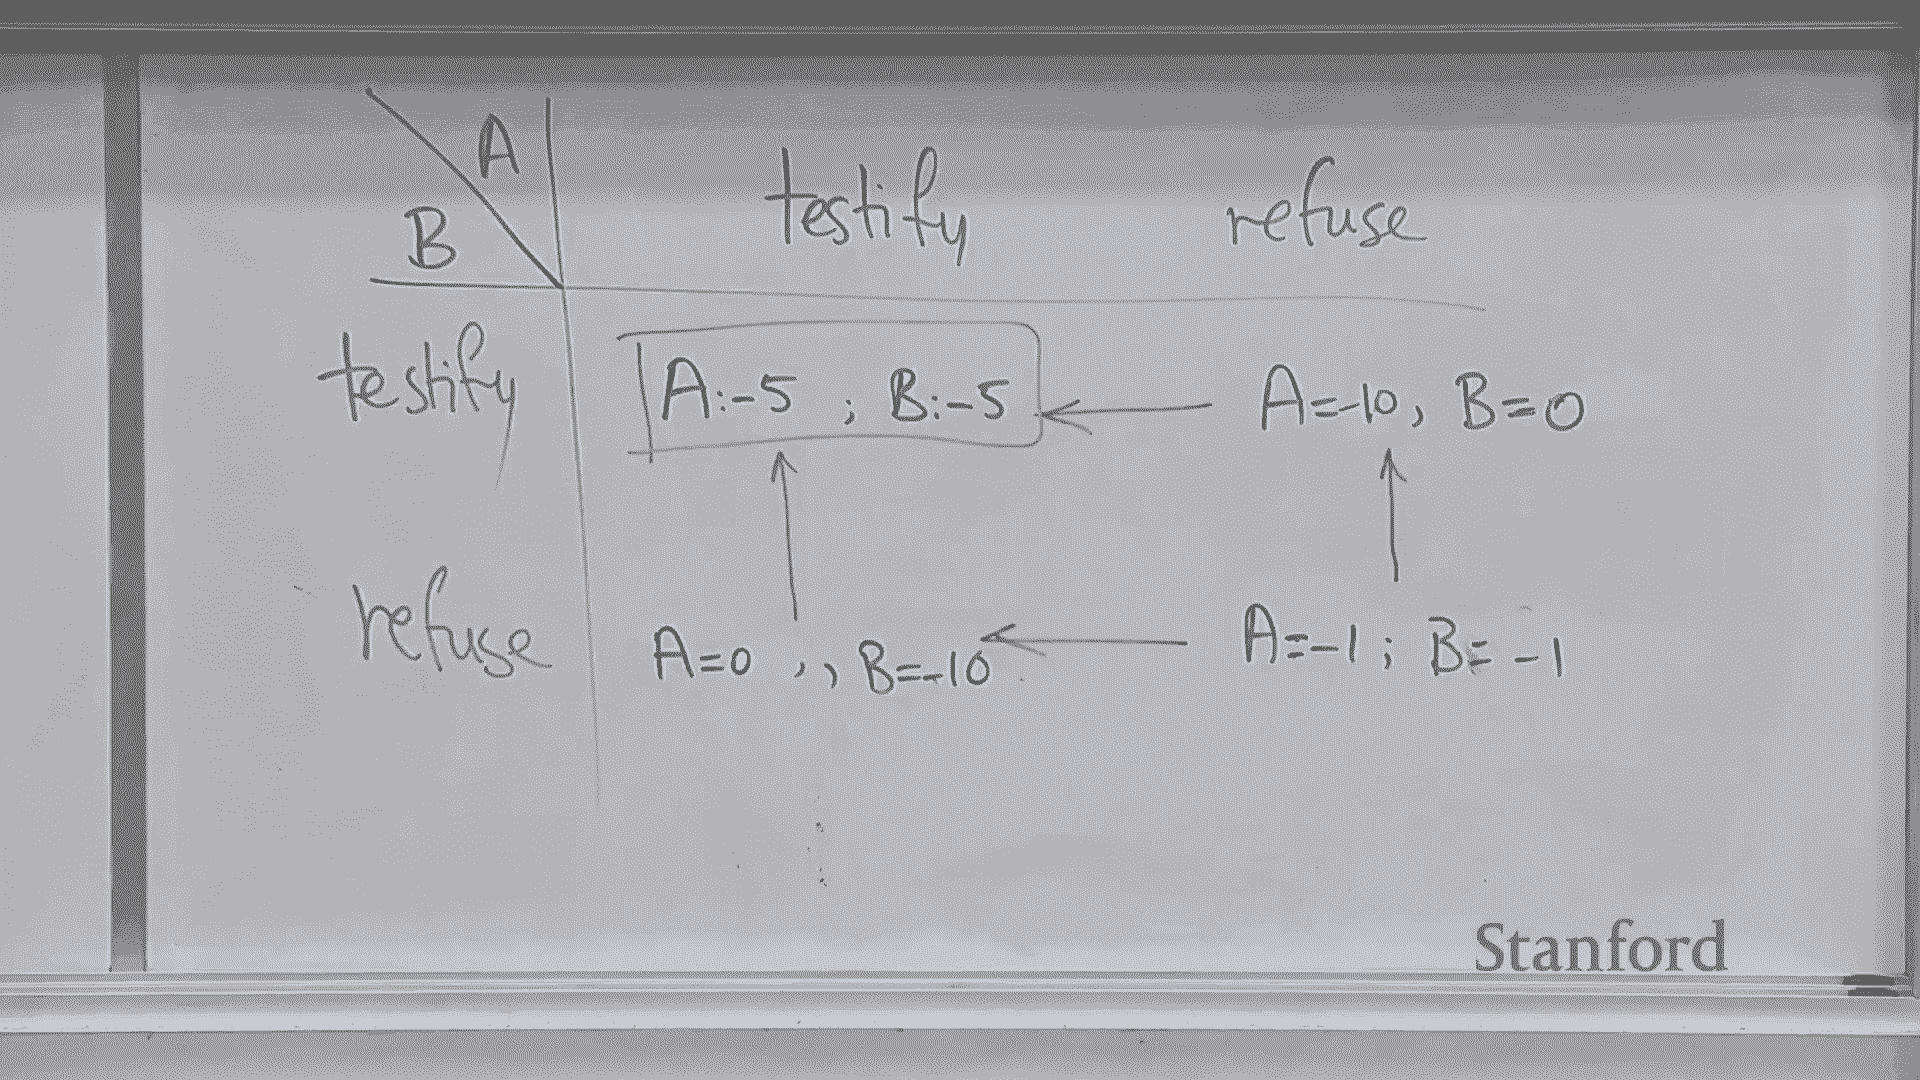 A
B
testify refuse
testify A:-5 ; B:-5 A=-10, B=0
refuse A=0 , , B=-10 A=-1; B= -1
Stanford